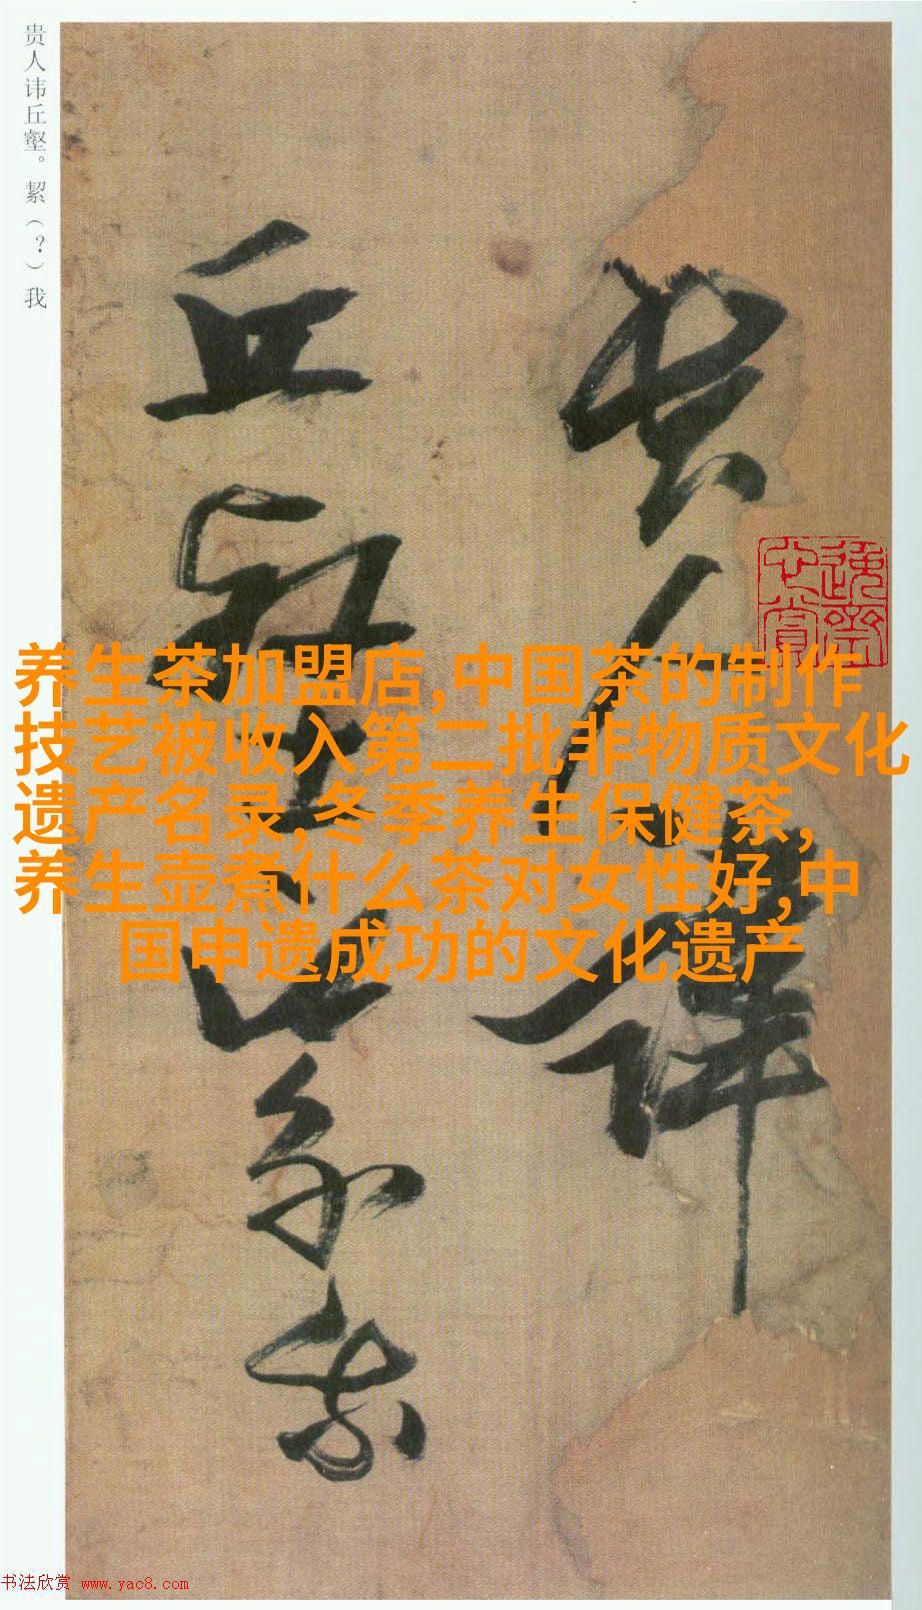 贵人讳丘壑。絜（？）我
贵人讳
丘壑絜我
养生茶加盟店,中国茶的制作
技艺被收入第二批非物质文化
遗产名录,冬季养生保健茶,
养生壶煮什么茶对女性好,中
国申遗成功的文化遗产
书法欣赏 www.yac8.com